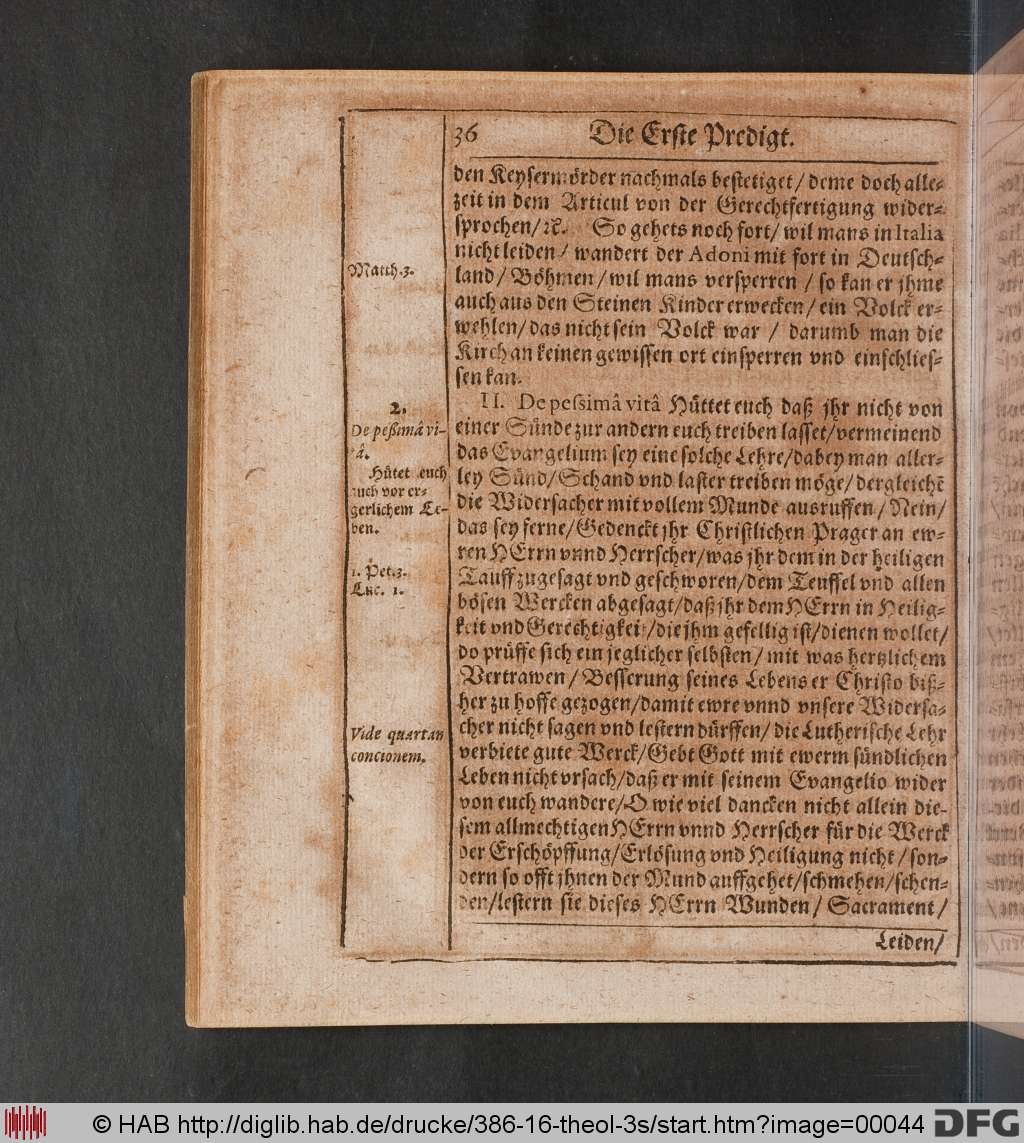 36 Die Erste Predigt.
den Keysermörder nachmals bestetiget/ deme doch alle-
zeit in dem Articul von der Gerechtfertigung wider-
sprochen/ꝛc. So gehets noch fort/ wil mans in Italia
nicht leiden/ wandert der Adoni mit fort in Deutsch-
land/ Böhmen/ wil mans versperren / so kan er jhme
auch aus den Steinen Kinder erwecken/ ein Volck er-
wehlen/ das nicht sein Volck war / darumb man die
Kirch an keinen gewissen ort einsperren vnd einschlies-
sen kan.
II. De pessimâ vitâ Hüttet euch daß jhr nicht von
einer Sünde zur andern euch treiben lasset/ vermeinend
das Evangelium sey eine solche Lehre/ dabey man aller-
ley Sünd/ Schand vnd laster treiben möge/ dergleichẽ
die Widersacher mit vollem Munde ausruffen/ Nein/
das sey ferne/ Gedenckt jhr Christlichen Prager an ew-
ren HErrn vnnd Herrscher/ was jhr dem in der heiligen
Tauff zugesagt vnd geschworen/ dem Teuffel vnd allen
bösen Wercken abgesagt/ daß jhr dem HErrn in Heilig-
keit vnd Gerechtigkeit/ die jhm gefellig ist/ dienen wollet/
do prüffe sich ein jeglicher selbsten/ mit was hertzlichem
Vertrawen/ Besserung seines Lebens er Christo biß-
her zu hoffe gezogen/ damit ewre vnnd vnsere Widersa-
cher nicht sagen vnd lestern dürffen/ die Lutherische Lehr
verbiete gute Werck/ Gebt Gott mit ewerm sündlichen
Leben nicht vrsach/ daß er mit seinem Evangelio wider
von euch wandere/ O wie viel dancken nicht allein die-
sem allmechtigen HErrn vnnd Herrscher für die Werck
der Erschöpffung/ Erlösung vnd Heiligung nicht/ son-
dern so offt jhnen der Mund auffgehet/ schmehen/ schen-
den/ lestern sie dieses HErrn Wunden/ Sacrament/
Leiden/
Matth.3.
2.
De peßimâ vi-
tâ.
Hütet euch
auch vor er-
gerlichem Le-
ben.
1. Pet.3.
Luc. 1.
Vide quartam
concionem.
© HAB http://diglib.hab.de/drucke/386-16-theol-3s/start.htm?image=00044
DFG